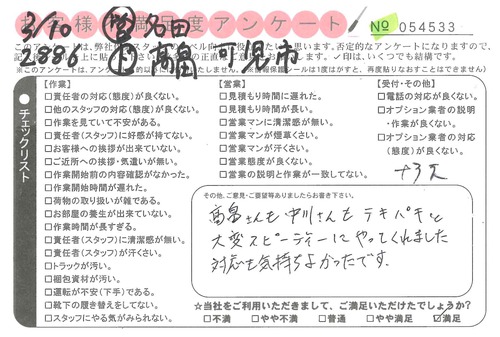 お客様満足度アンケート
№ 054533
3/10
2896
営 名田
高畠 可児市
チェックリスト
【作業】
□責任者の対応(態度)が良くない。
□他のスタッフの対応(態度)が良くない。
□作業を見ていて不安がある。
□責任者(スタッフ)に好感が持てない。
□お客様への挨拶が出来ていない。
□ご近所への挨拶・気遣いが無い。
□作業開始前の内容確認がなかった。
□作業開始時間が遅れた。
□荷物の取り扱いが雑である。
□お部屋の養生が出来ていない。
□作業時間が長すぎる。
□責任者(スタッフ)に清潔感が無い。
□責任者(スタッフ)が汗さい。
□トラックが汚い。
□梱包資材が汚い。
□運転が不安(下手)である。
□靴下の履き替えをしてない。
□スタッフにやる気がみられない。
【営業】
□見積もり時間に遅れた。
□見積もり時間が長い。
□営業マンに清潔感が無い。
□営業マンが煙草くさい。
□営業マンが汗さい。
□営業態度が良くない。
□営業の説明と作業が一致してない。
【受付・その他】
□電話の対応が良くない。
□オプション業者の説明
・作業が良くない。
□オプション業者の対応
(態度)が良くない。
その他、ご意見・ご要望等ありましたらお書き下さい。
高畠さんも中川さんもテキパキと
大変スピーディーにやってくれました
対応も気持ちよかったです。
☆当社をご利用いただきまして、ご満足いただけたでしょうか?
□不満 □やや不満 □普通 □やや満足 ☑満足